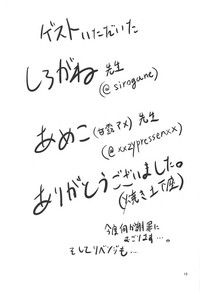 ゲストいただいた
しろがね 先生
(@sirogane)
あめこ(甘露アメ) 先生
(@xxzypressenxx)
ありがとうございました。
(焼き土下座)
今度何か謝罪に
むごります…。
そしてリベンジも…